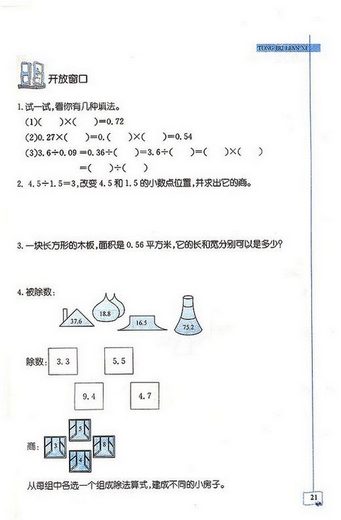 TONG BU LIAN XI
开放窗口
1.试一试,看你有几种填法。
(1)(　　)×(　　)=0.72
(2)0.27×(　　)=0.(　　)×(　　)=0.54
(3)3.6÷0.09=0.36÷(　　)=3.6÷(　　)=(　　)×(　　)
=(　　)÷(　　)
2. 4.5÷1.5=3,改变4.5和1.5的小数点位置,并求出它的商。
3.一块长方形的木板,面积是0.56平方米,它的长和宽分别可以是多少?
4.被除数:
37.6 18.8 16.5 75.2
除数: 3.3 5.5
9.4 4.7
商: 3 5 8
4
从每组中各选一个组成除法算式,建成不同的小房子。
21